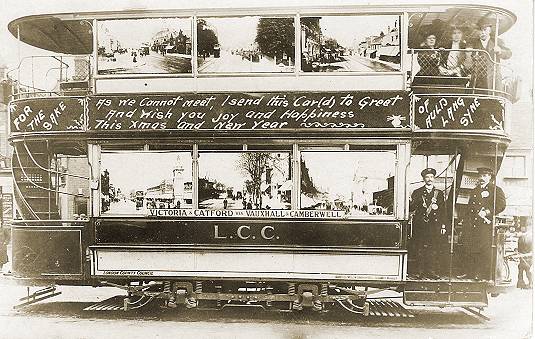 FOR THE SAKE
As We Cannot meet, I send this Car(d) to Great
And Wish you Joy and Happiness
This Xmas and New Year
OF AULD LANG SYNE
VICTORIA & CATFORD VIA VAUXHALL & CAMBERWELL
L.C.C.
LONDON COUNTY COUNCIL